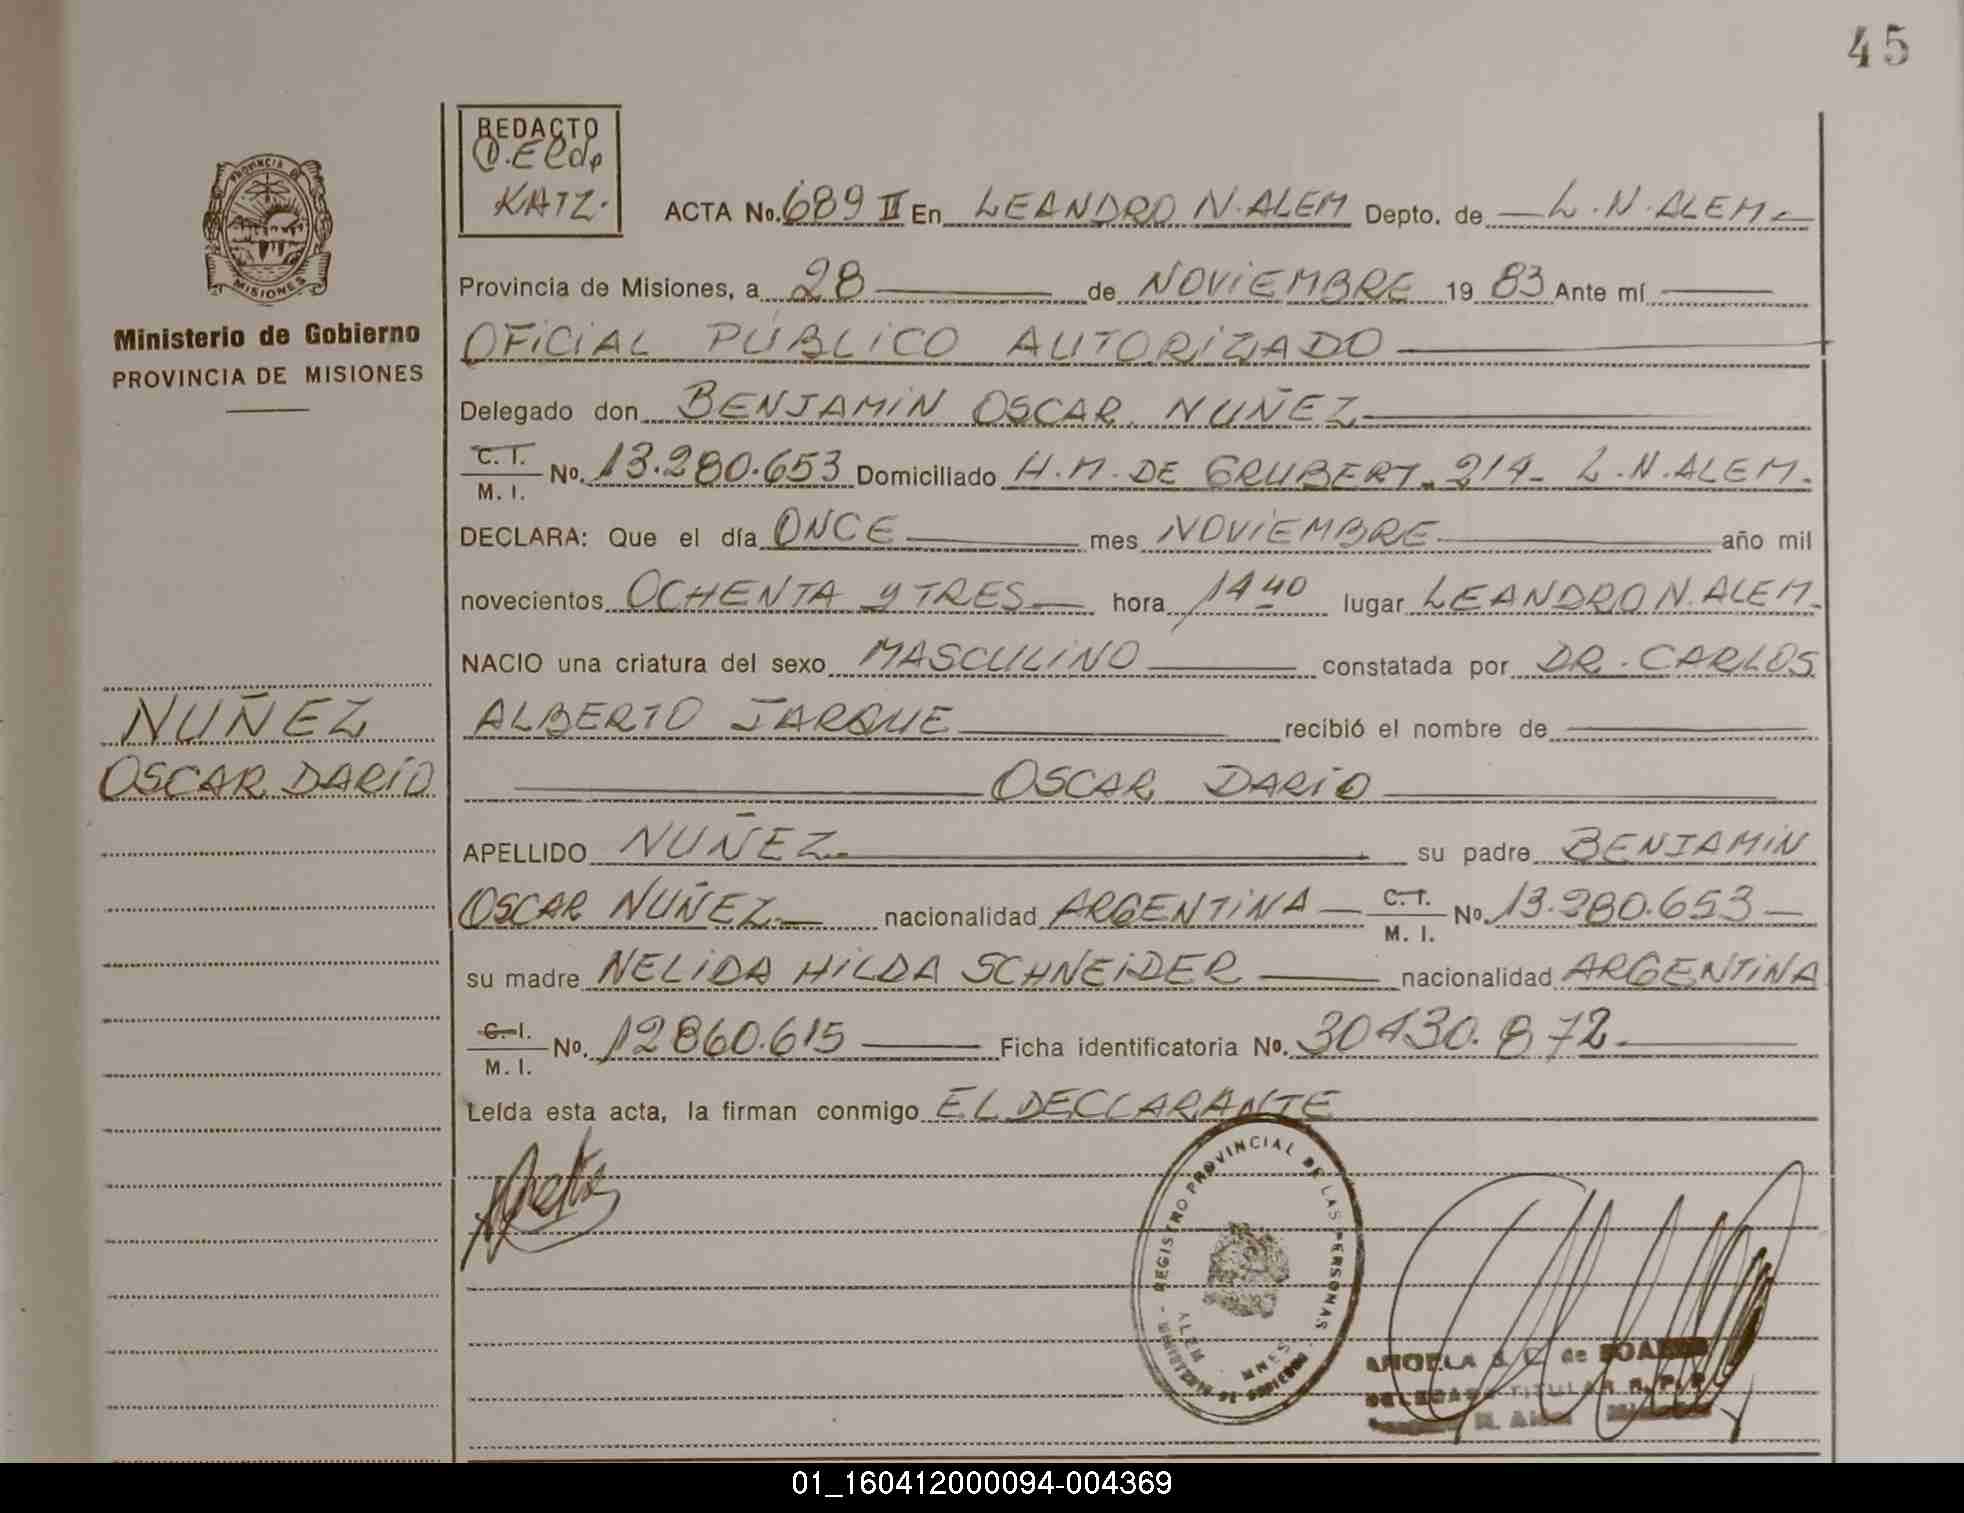 45
PROVINCIA DE
MISIONES
Ministerio de Gobierno
PROVINCIA DE MISIONES
NUÑEZ
OSCAR DARÍO
REDACTO
KATZ.
ACTA No. 689 II En LEANDRO N. ALEM Depto. de L. N. ALEM
Provincia de Misiones, a 28 de NOVIEMBRE 1983 Ante mí
OFICIAL PÚBLICO AUTORIZADO
Delegado don BENJAMIN OSCAR NUÑEZ
C. I. / M. I. No. 13.280.653 Domiciliado H. M. DE GRUBERT. 214 - L. N. ALEM.
DECLARA: Que el día ONCE mes NOVIEMBRE año mil
novecientos OCHENTA Y TRES hora 14 40 lugar LEANDRO N. ALEM.
NACIO una criatura del sexo MASCULINO constatada por DR. CARLOS
ALBERTO JARQUE recibió el nombre de
OSCAR DARIO
APELLIDO NUÑEZ su padre BENJAMIN
OSCAR NUÑEZ nacionalidad ARGENTINA C. I. / M. I. No. 13.280.653
su madre NELIDA HILDA SCHNEIDER nacionalidad ARGENTINA
C. I. / M. I. No. 12860.615 Ficha identificatoria No. 30430.872
Leída esta acta, la firman conmigo EL DECLARANTE
REGISTRO PROVINCIAL DE LAS PERSONAS
de
TITULAR R. P. P.
N. Alem
01_160412000094-004369